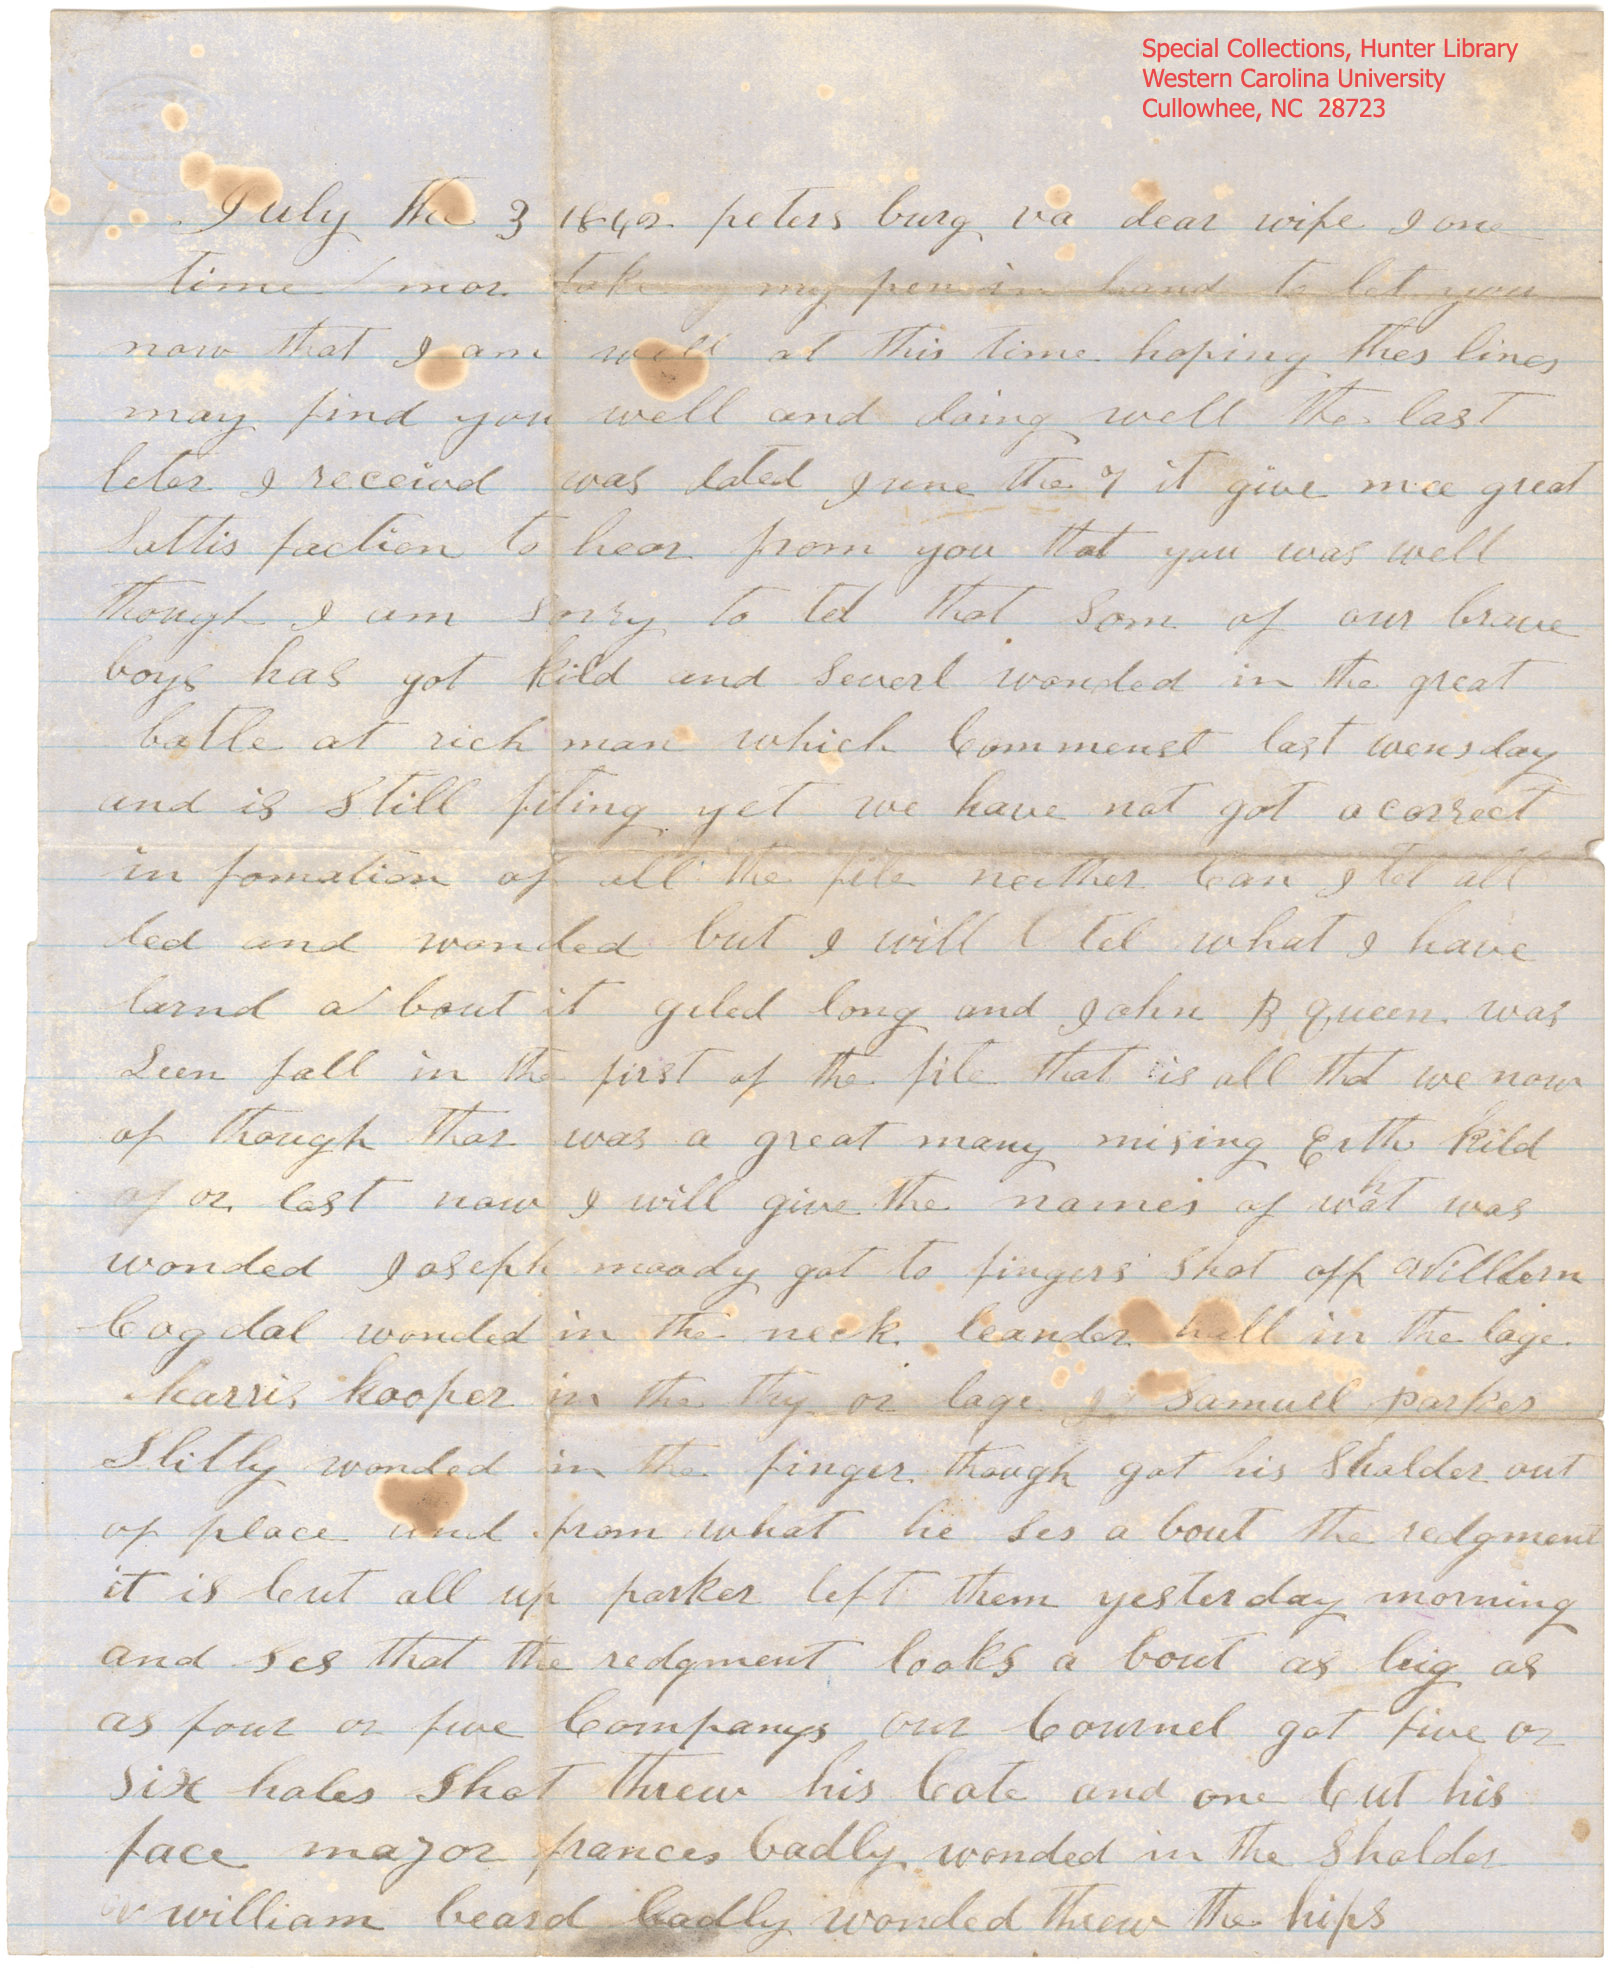 Special Collections, Hunter Library
Western Carolina University
Cullowhee, NC 28723
July the 3 1862 peters burg va dear wife I one
time mor take my pen in hand to let you
now that I am well at this time hoping thes lines
may find you well and doing well the last
leter I receivd was dated June the 7 it give mee great
sattis faction to hear from you that you was well
though I am sorry to tel that som of our brave
boys has got kild and severl wonded in the great
batle at rich man which Commenst last wensday
and is still fiting yet we have not got acorrect
in fomation of all the fite neither Can I tel all
led and wonded but I will tel what I have
larnd a bout it geled long and John B queen was
seen fall in the first of the fite that is all that we now
of though thar was a great many mising Erthe kild
of or last now I will give the names of what was
wonded Joseph moody got to fingers shot off
Cogdal wonded in the neck leander hall in the lage
harris kooper in the thy or lage Samuel parker
Slitly wonded in the finger though got his sholder out
of place and from what he ses a bout the redgment
it is Cut all up parker left them yesterday morning
and ses that the redgment looks a bout as big as
as four or five Companys our Cournel got five or
six holes shot threw his Cote and one Cut his
face major frances badly wonded in the sholder
william beard badly wonded threw the hips